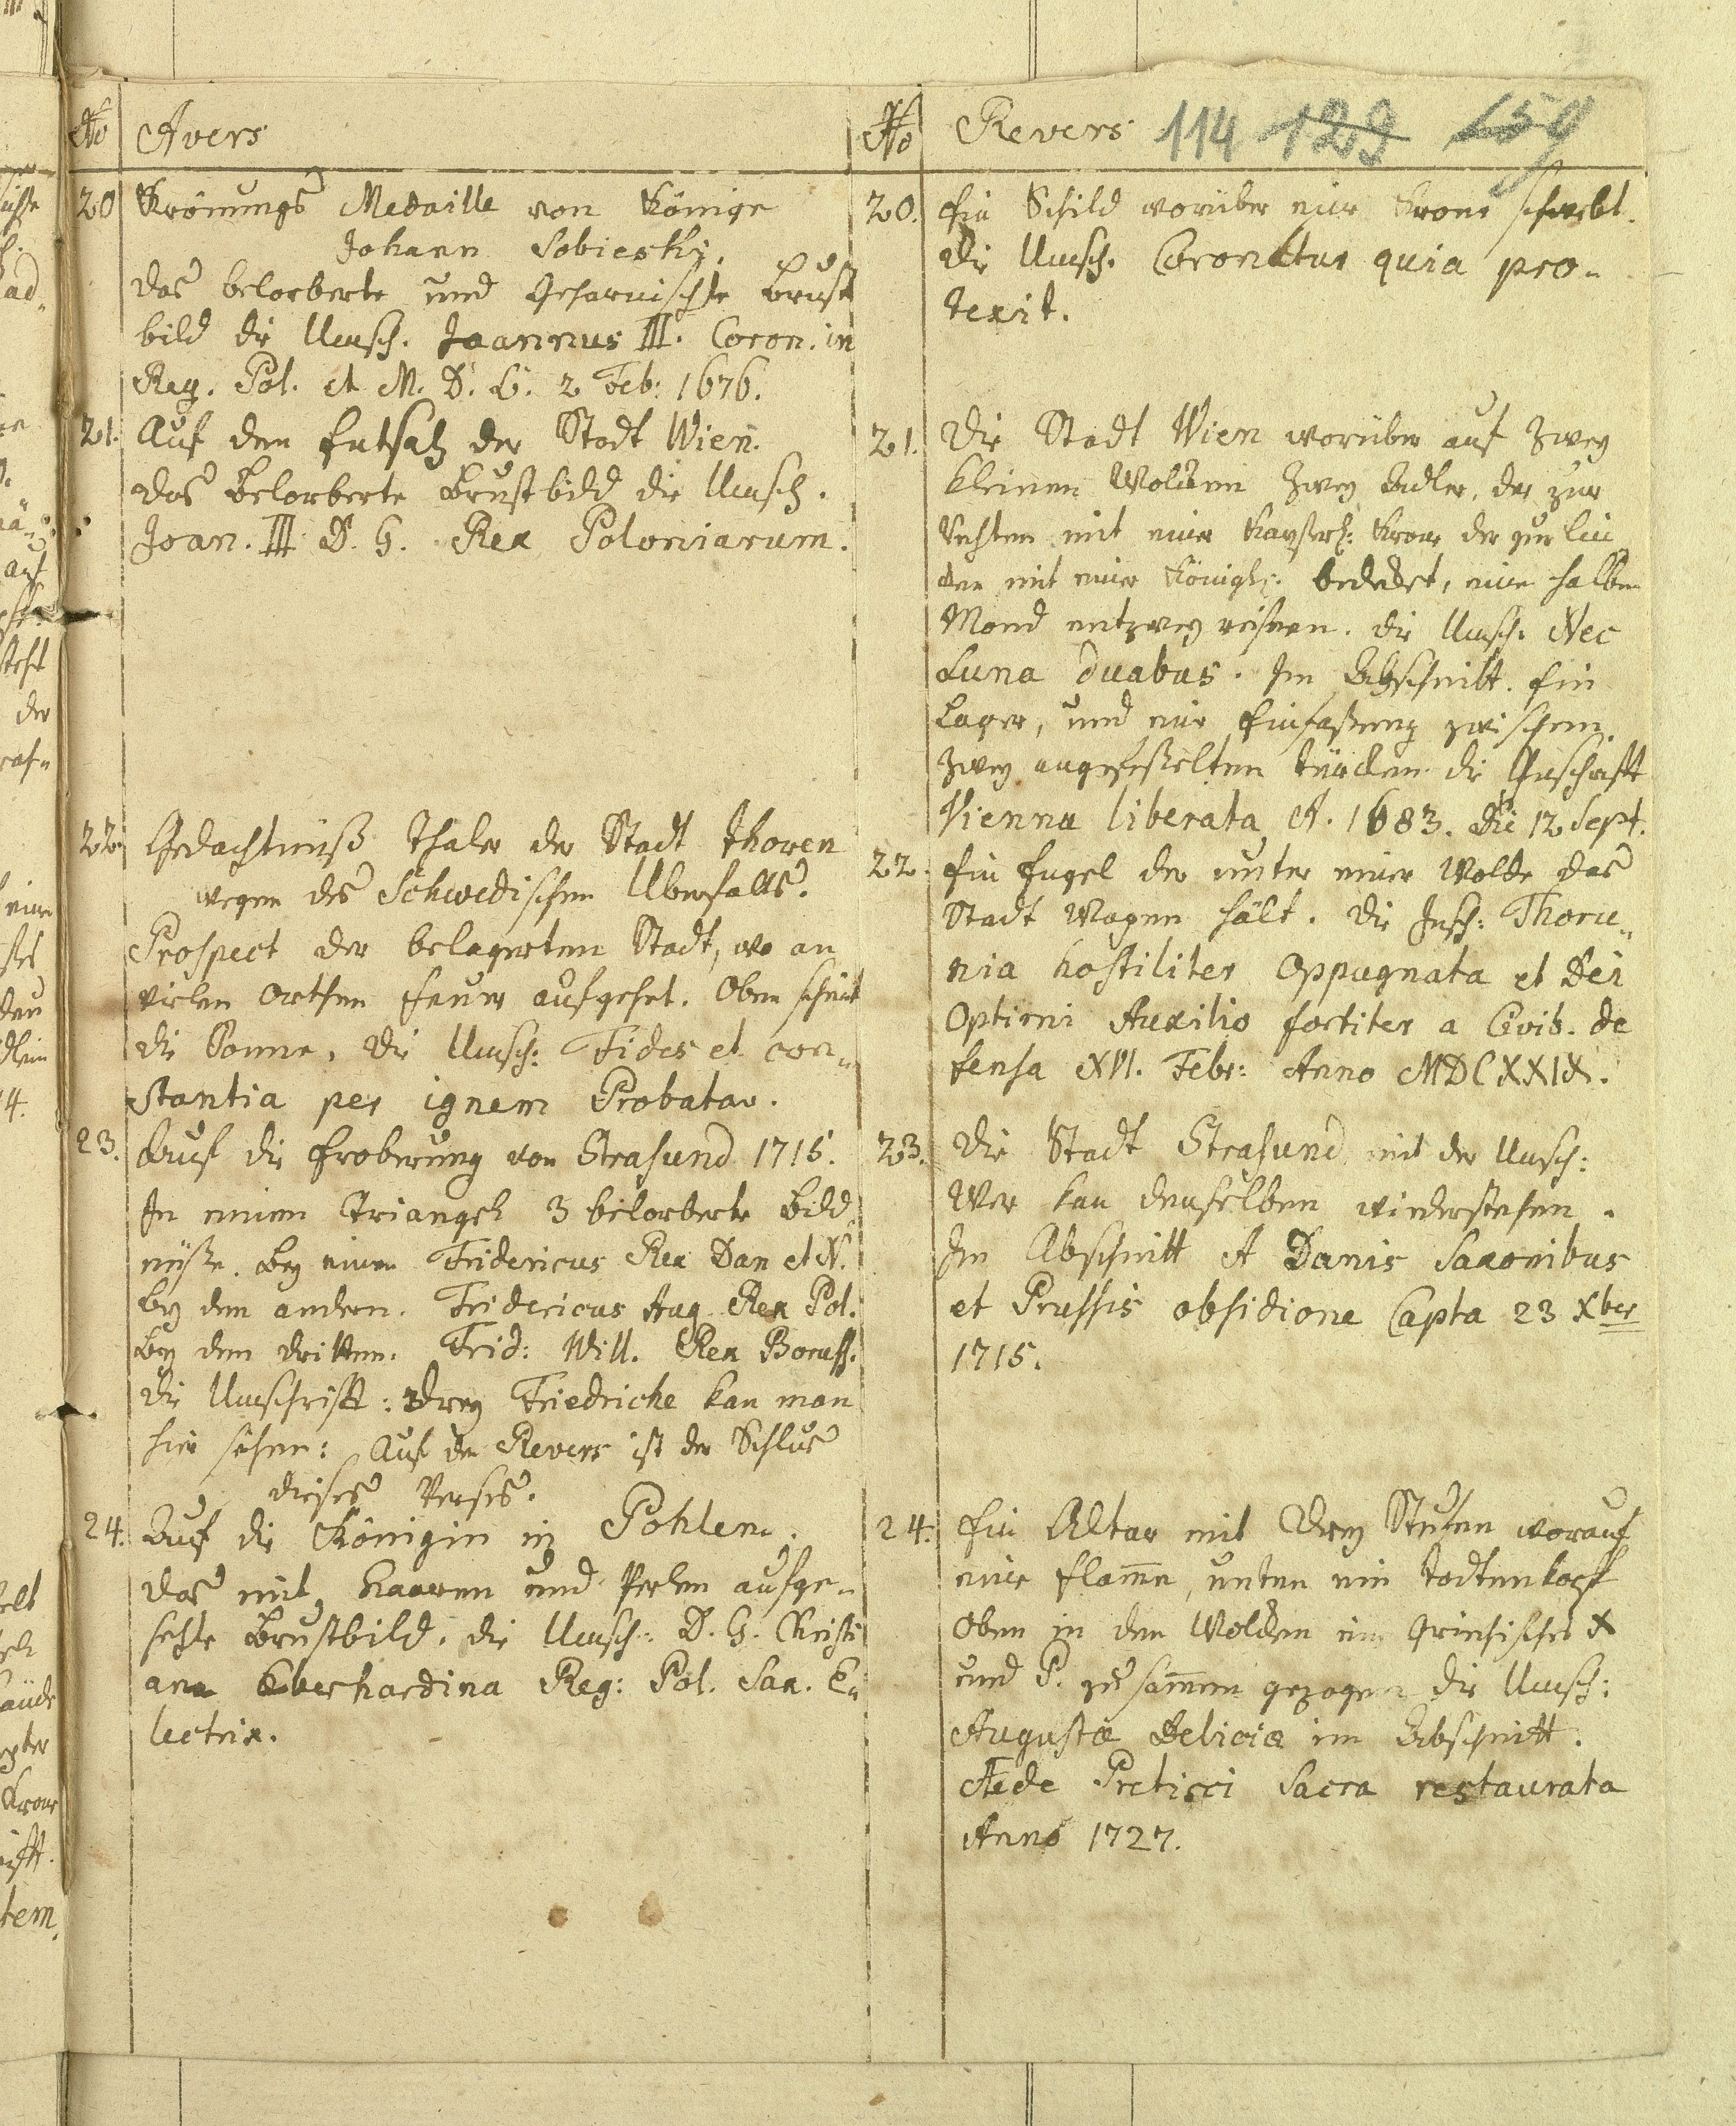 No Avers
20 Krönungs Medaille von Könige
Johann Sobieski.
das belorberte und Geharnischte Brust
bild die Umsch. Joannus III. Coron. in
Reg. Pol. et M. D. L. 2 Feb: 1676.
21. Auf den Entsatz der Stadt Wien.
das Belorberte Brustbild die Umsch.
Joan. III D. G. Rex Poloniarum.
22. Gedächtnüß Thaler der Stadt Thoren
wegen des Schwedischen Uberfalls.
Prospect der belagerten Stadt, wo an
vielen Orthen Feuer aufgehet. Oben scheint
die Sonne, die Umsch: Fides et con„
stantia per ignem Probata.
23. Auf die Eroberung von Strasund 1715.
In einem Triangel 3 belorberte Bild
nüße. Bey einen Fridericus Rex Dan et N.
bey dem andern. Fridericus Aug. Rex Pol.
Bey dem dritten. Frid: Will. Rex Boruss.
die Umschrifft: Drey Friedriche kan man
hier sehen: Auf der Revers ist der Schlus
dieses Verses.
24. Auf die Königin in Pohlen.
das mit Haaren und Perlen aufge„
setzte Brustbild, die Umsch: D. G. Christi
ana Eberhardina Reg: Pol. Sax. E„
lectrix.
No Revers 114 123 159
20. Ein Schild worüber eine Krone schwebt.
die Umsch. Coronatus quia pro„
texit.
21. Die Stadt Wien worüber auf zwey
kleinen Wolcken zwey Adler, der zur
rechten mit einer Kayserl: Krone der zur lin
cken mit einer Königl: bedecket, einen halben
Mond entzwey reißen. die Umsch. Nec
Luna duabus. Im Abschnitt. Ein
Lager, und eine Einfaßung zwischen
zwey angefeßelten Türcken die Inschrifft
Vienna liberata A. 1683. die 12 Sept.
22. Ein Engel der unter einer Wolcke das
Stadt Wapen hält. Die Insch: Thoru„
nia hostiliter Oppugnata et Dei
Optimi Auxilio fortiter a Civib. de
fensa XVI. Febr: Anno MDCXXIX.
23. Die Stadt Strasund mit der Umsch:
Wer kan denselben wiederstehen.
Im Abschnitt A Danis Saxonibus
et Prussis obsidione Capta 23 Xber
1715.
24. Ein Altar mit Drey Stufen worauf
eine Flamme, unten ein Todtenkopf
Oben in den Wolcken ein Griechisches X
und P. zusammen gezogen die Umsch:
Augustæ Deliciæ im Abschnitt.
Aede Pretisci Sacra restaurata
Anno 1727.